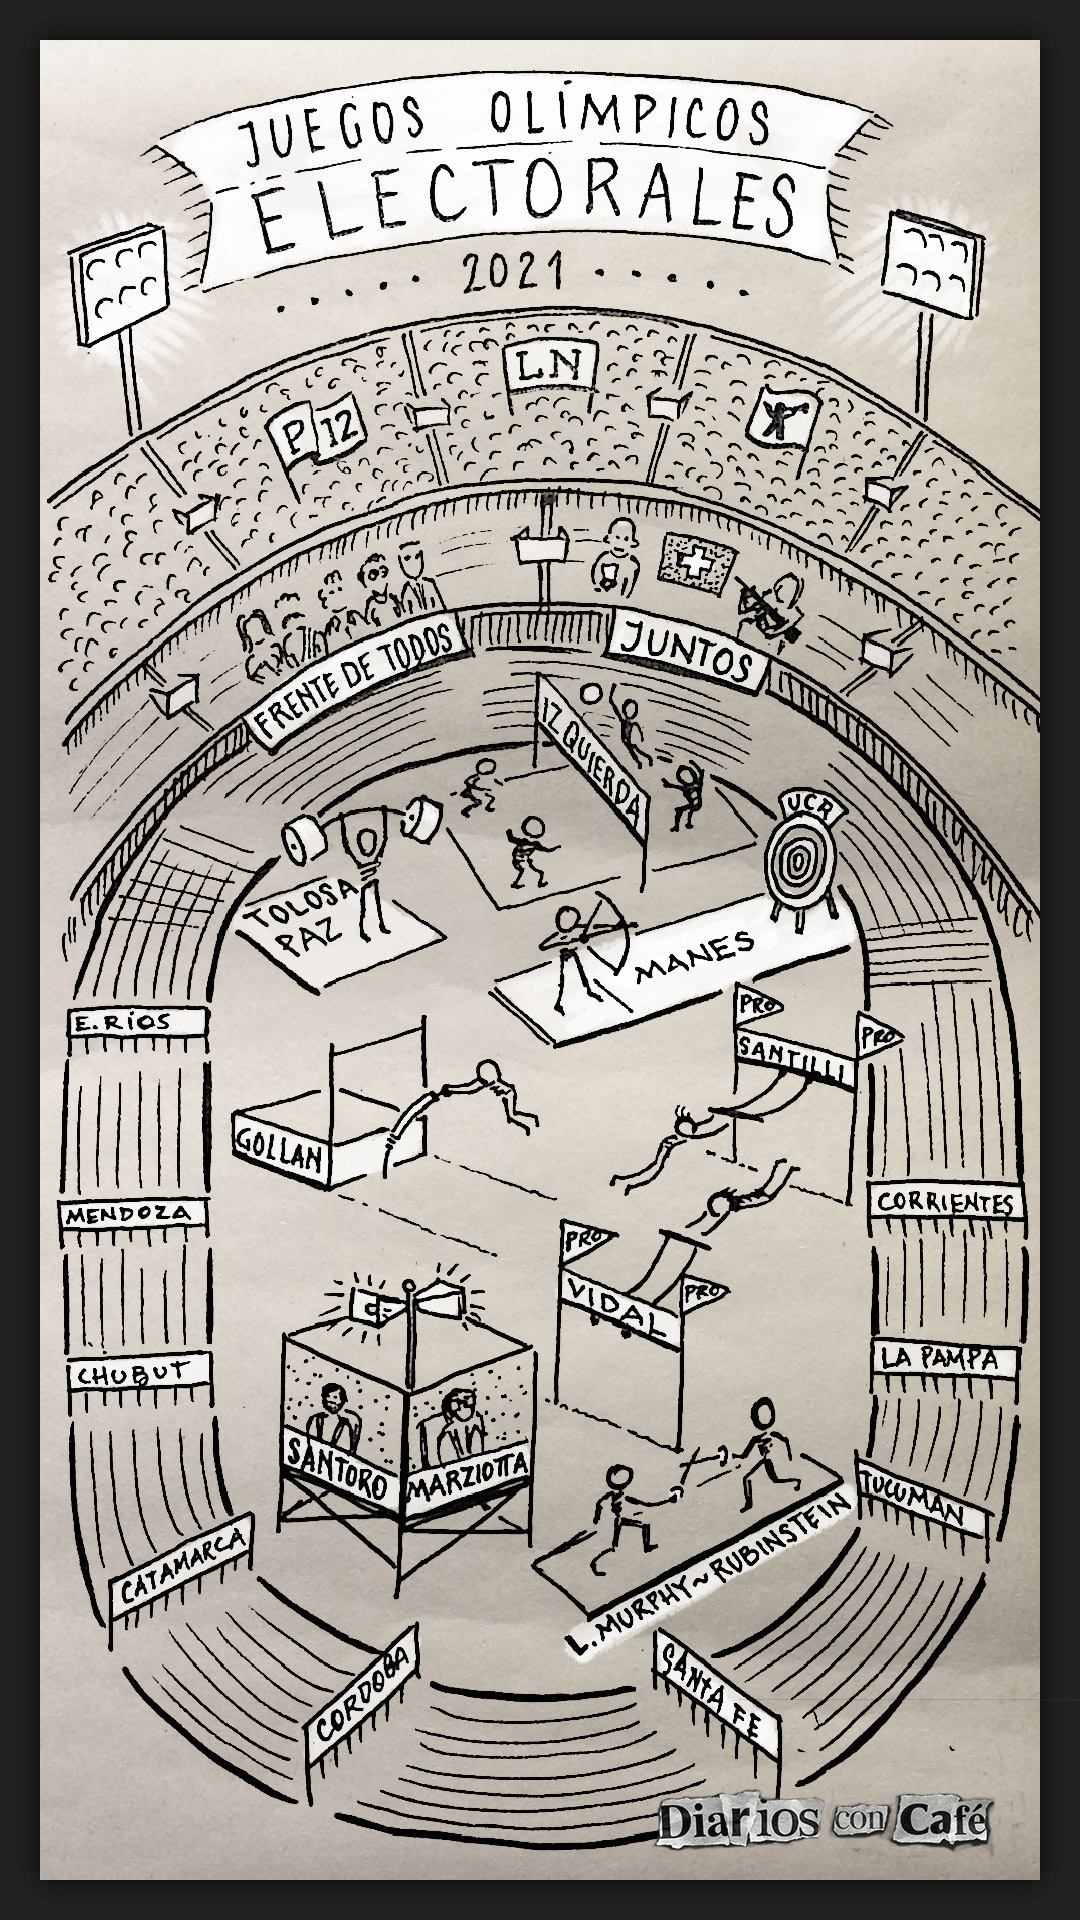 JUEGOS OLÍMPICOS
ELECTORALES
2021
LN
P 12
FRENTE DE TODOS
JUNTOS
IZQUIERDA
UCR
TOLOSA
PAZ
MANES
E.RÍOS
PRO
PRO
SANTILLI
GOLLAN
MENDOZA
CORRIENTES
PRO
VIDAL
PRO
CHUBUT
LA PAMPA
SANTORO
MARZIOTTA
TUCUMÁN
L. MURPHY ~ RUBINSTEIN
CATAMARCA
CORDOBA
SANTA FE
Diarios con Café